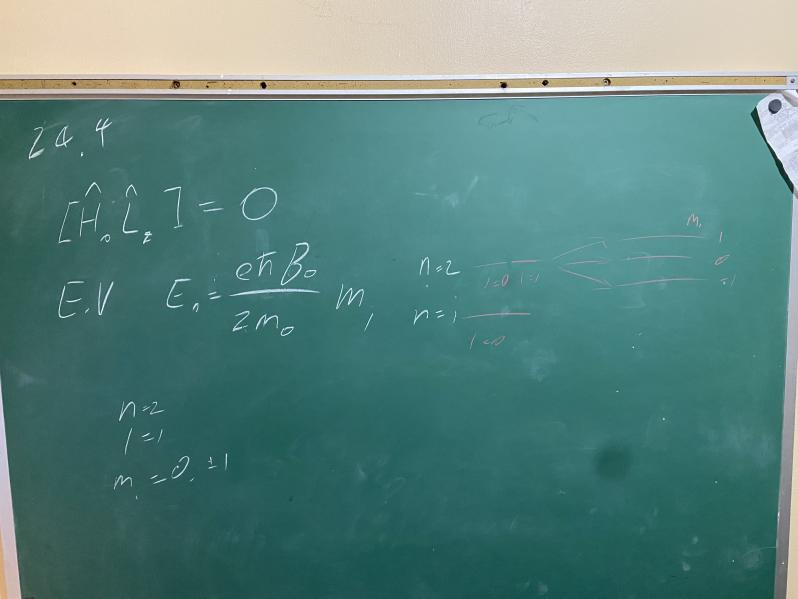 24.4
[Ĥ₀ L̂z] = 0
E.V Eₙ = eħB₀ / 2m₀ mₗ
n=2 l=0 l=1 mₗ 1 0 -1
n=1
l=0
n=2
l=1
mₗ = 0, ±1